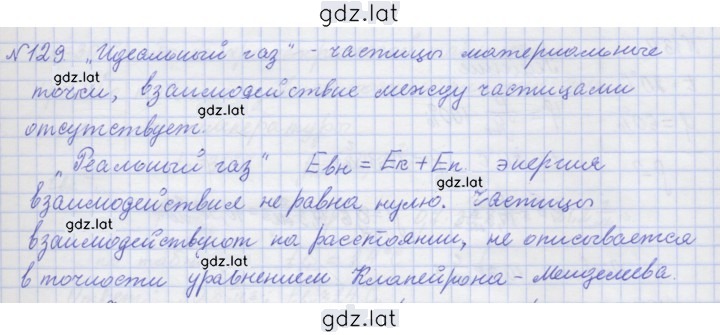 gdz.lat
№129 „Идеальный газ" - частицы материальные
gdz.lat gdz.lat
точки, взаимодействие между частицами
отсутствует.
gdz.lat
„Реальный газ" Евн = Ек + Еп. энергия
gdz.lat
взаимодействия не равна нулю. Частицы
gdz.lat
взаимодействуют на расстоянии, не описывается
в точности уравнением Клапейрона - Менделеева.
gdz.lat gdz.lat
gdz.lat